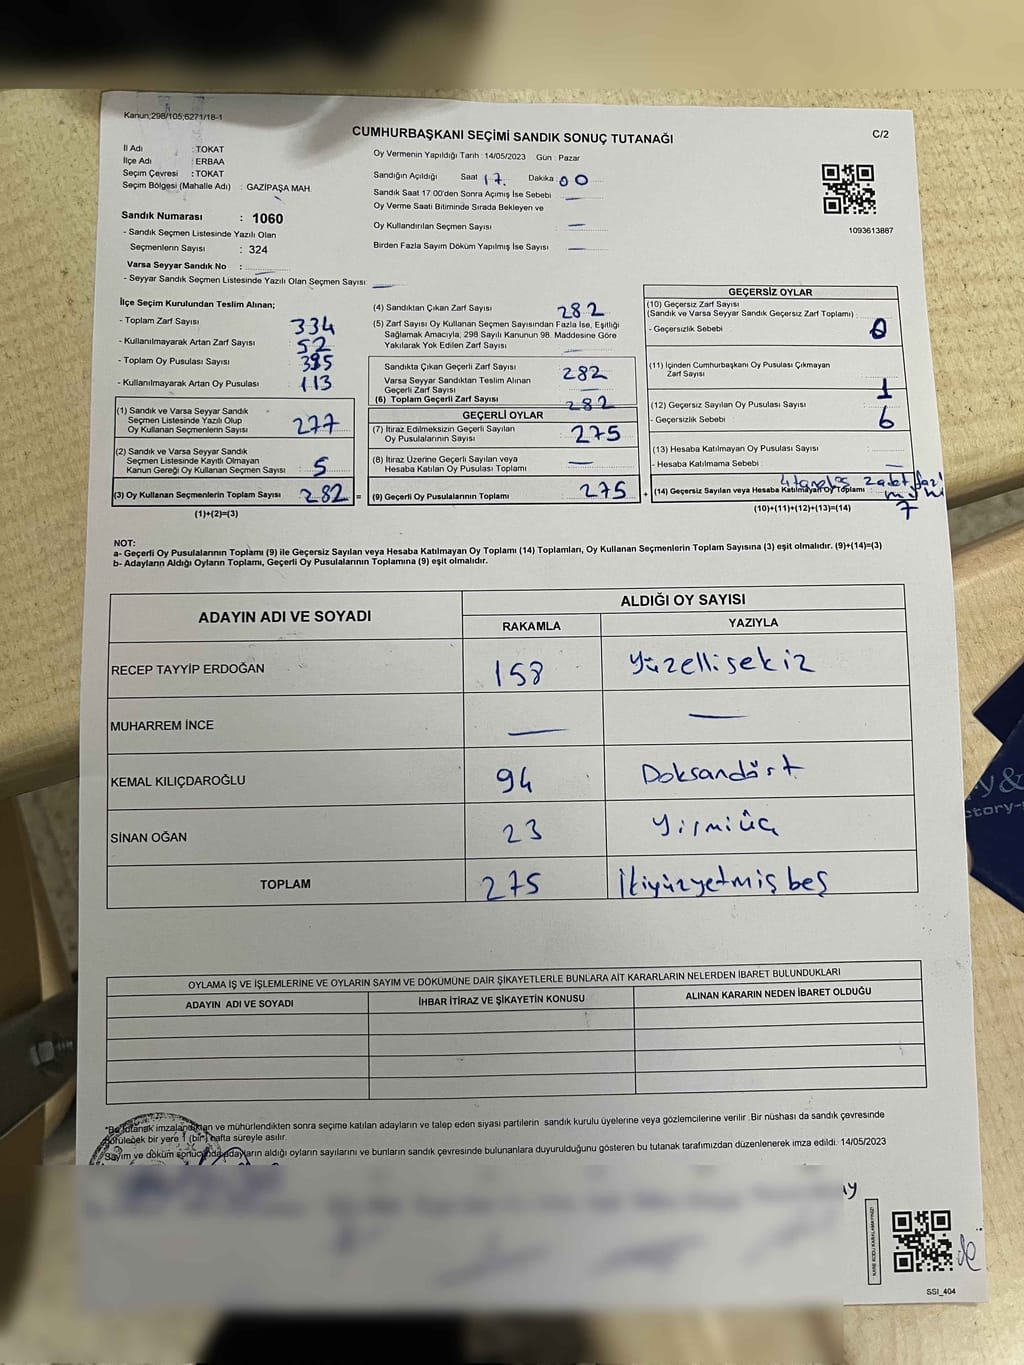 Kanun;298/105;6271/18-1
CUMHURBAŞKANI SEÇİMİ SANDIK SONUÇ TUTANAĞI
C/2
İl Adı : TOKAT
İlçe Adı : ERBAA
Seçim Çevresi : TOKAT
Seçim Bölgesi (Mahalle Adı) : GAZİPAŞA MAH.
Sandık Numarası : 1060
- Sandık Seçmen Listesinde Yazılı Olan
Seçmenlerin Sayısı : 324
Varsa Seyyar Sandık No :
- Seyyar Sandık Seçmen Listesinde Yazılı Olan Seçmen Sayısı
Oy Vermenin Yapıldığı Tarih : 14/05/2023 Gün : Pazar
Sandığın Açıldığı Saat 17. Dakika : 00
Sandık Saat 17.00'den Sonra Açımış İse Sebebi —
Oy Verme Saati Bitiminde Sırada Bekleyen ve
Oy Kullandırılan Seçmen Sayısı —
Birden Fazla Sayım Döküm Yapılmış İse Sayısı —
1093613887
İlçe Seçim Kurulundan Teslim Alınan;
- Toplam Zarf Sayısı 334
- Kullanılmayarak Artan Zarf Sayısı 52
- Toplam Oy Pusulası Sayısı
- Kullanılmayarak Artan Oy Pusulası 113
(1) Sandık ve Varsa Seyyar Sandık
Seçmen Listesinde Yazılı Olup
Oy Kullanan Seçmenlerin Sayısı 277
(2) Sandık ve Varsa Seyyar Sandık
Seçmen Listesinde Kayıtlı Olmayan
Kanun Gereği Oy Kullanan Seçmen Sayısı 5
(3) Oy Kullanan Seçmenlerin Toplam Sayısı 282 =
(1)+(2)=(3)
(4) Sandıktan Çıkan Zarf Sayısı 282
(5) Zarf Sayısı Oy Kullanan Seçmen Sayısından Fazla İse, Eşitliği
Sağlamak Amacıyla, 298 Sayılı Kanunun 98. Maddesine Göre
Yakılarak Yok Edilen Zarf Sayısı —
Sandıkta Çıkan Geçerli Zarf Sayısı 282
Varsa Seyyar Sandıktan Teslim Alınan
Geçerli Zarf Sayısı —
(6) Toplam Geçerli Zarf Sayısı 282
GEÇERLİ OYLAR
(7) İtiraz Edilmeksizin Geçerli Sayılan
Oy Pusulalarının Sayısı 275
(8) İtiraz Üzerine Geçerli Sayılan veya
Hesaba Katılan Oy Pusulası Toplamı —
(9) Geçerli Oy Pusulalarının Toplamı 275 +
GEÇERSİZ OYLAR
(10) Geçersiz Zarf Sayısı
(Sandık ve Varsa Seyyar Sandık Geçersiz Zarf Toplamı)
- Geçersizlik Sebebi 0
(11) İçinden Cumhurbaşkanı Oy Pusulası Çıkmayan
Zarf Sayısı 1
(12) Geçersiz Sayılan Oy Pusulası Sayısı
- Geçersizlik Sebebi 6
(13) Hesaba Katılmayan Oy Pusulası Sayısı
- Hesaba Katılmama Sebebi —
(14) Geçersiz Sayılan veya Hesaba Katılmayan Oy Toplamı 7
(10)+(11)+(12)+(13)=(14)
NOT:
a- Geçerli Oy Pusulalarının Toplamı (9) ile Geçersiz Sayılan veya Hesaba Katılmayan Oy Toplamı (14) Toplamları, Oy Kullanan Seçmenlerin Toplam Sayısına (3) eşit olmalıdır. (9)+(14)=(3)
b- Adayların Aldığı Oyların Toplamı, Geçerli Oy Pusulalarının Toplamına (9) eşit olmalıdır.
ADAYIN ADI VE SOYADI
ALDIĞI OY SAYISI
RAKAMLA YAZIYLA
RECEP TAYYİP ERDOĞAN 158 Yüzellisekiz
MUHARREM İNCE — —
KEMAL KILIÇDAROĞLU 94 Doksandört
SİNAN OĞAN 23 Yirmiüç
TOPLAM 275 İkiyüzyetmiş beş
OYLAMA İŞ VE İŞLEMLERİNE VE OYLARIN SAYIM VE DÖKÜMÜNE DAİR ŞİKAYETLERLE BUNLARA AİT KARARLARIN NELERDEN İBARET BULUNDUKLARI
ADAYIN ADI VE SOYADI İHBAR İTİRAZ VE ŞİKAYETİN KONUSU ALINAN KARARIN NEDEN İBARET OLDUĞU
*Bu tutanak imzalandıktan ve mühürlendikten sonra seçime katılan adayların ve talep eden siyasi partilerin sandık kurulu üyelerine veya gözlemcilerine verilir. Bir nüshası da sandık çevresinde
görülecek bir yere 1 (bir) hafta süreyle asılır.
Sayım ve döküm sonucunda adayların aldığı oyların sayılarını ve bunların sandık çevresinde bulunanlara duyurulduğunu gösteren bu tutanak tarafımızdan düzenlenerek imza edildi. 14/05/2023
SSI_404